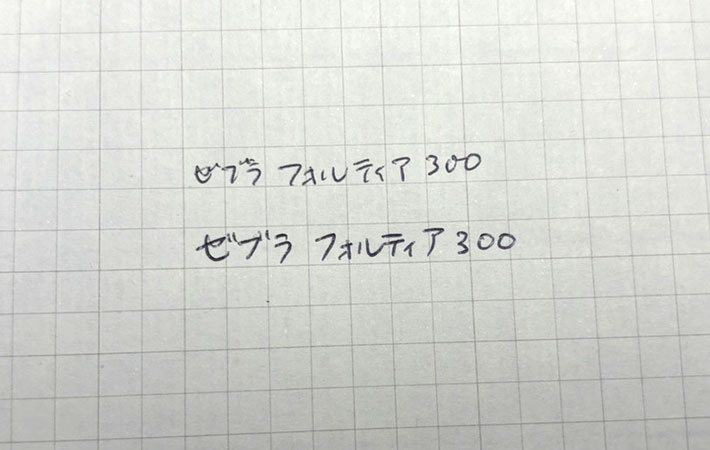 ゼブラ フォルティア 300
ゼブラ フォルティア 300